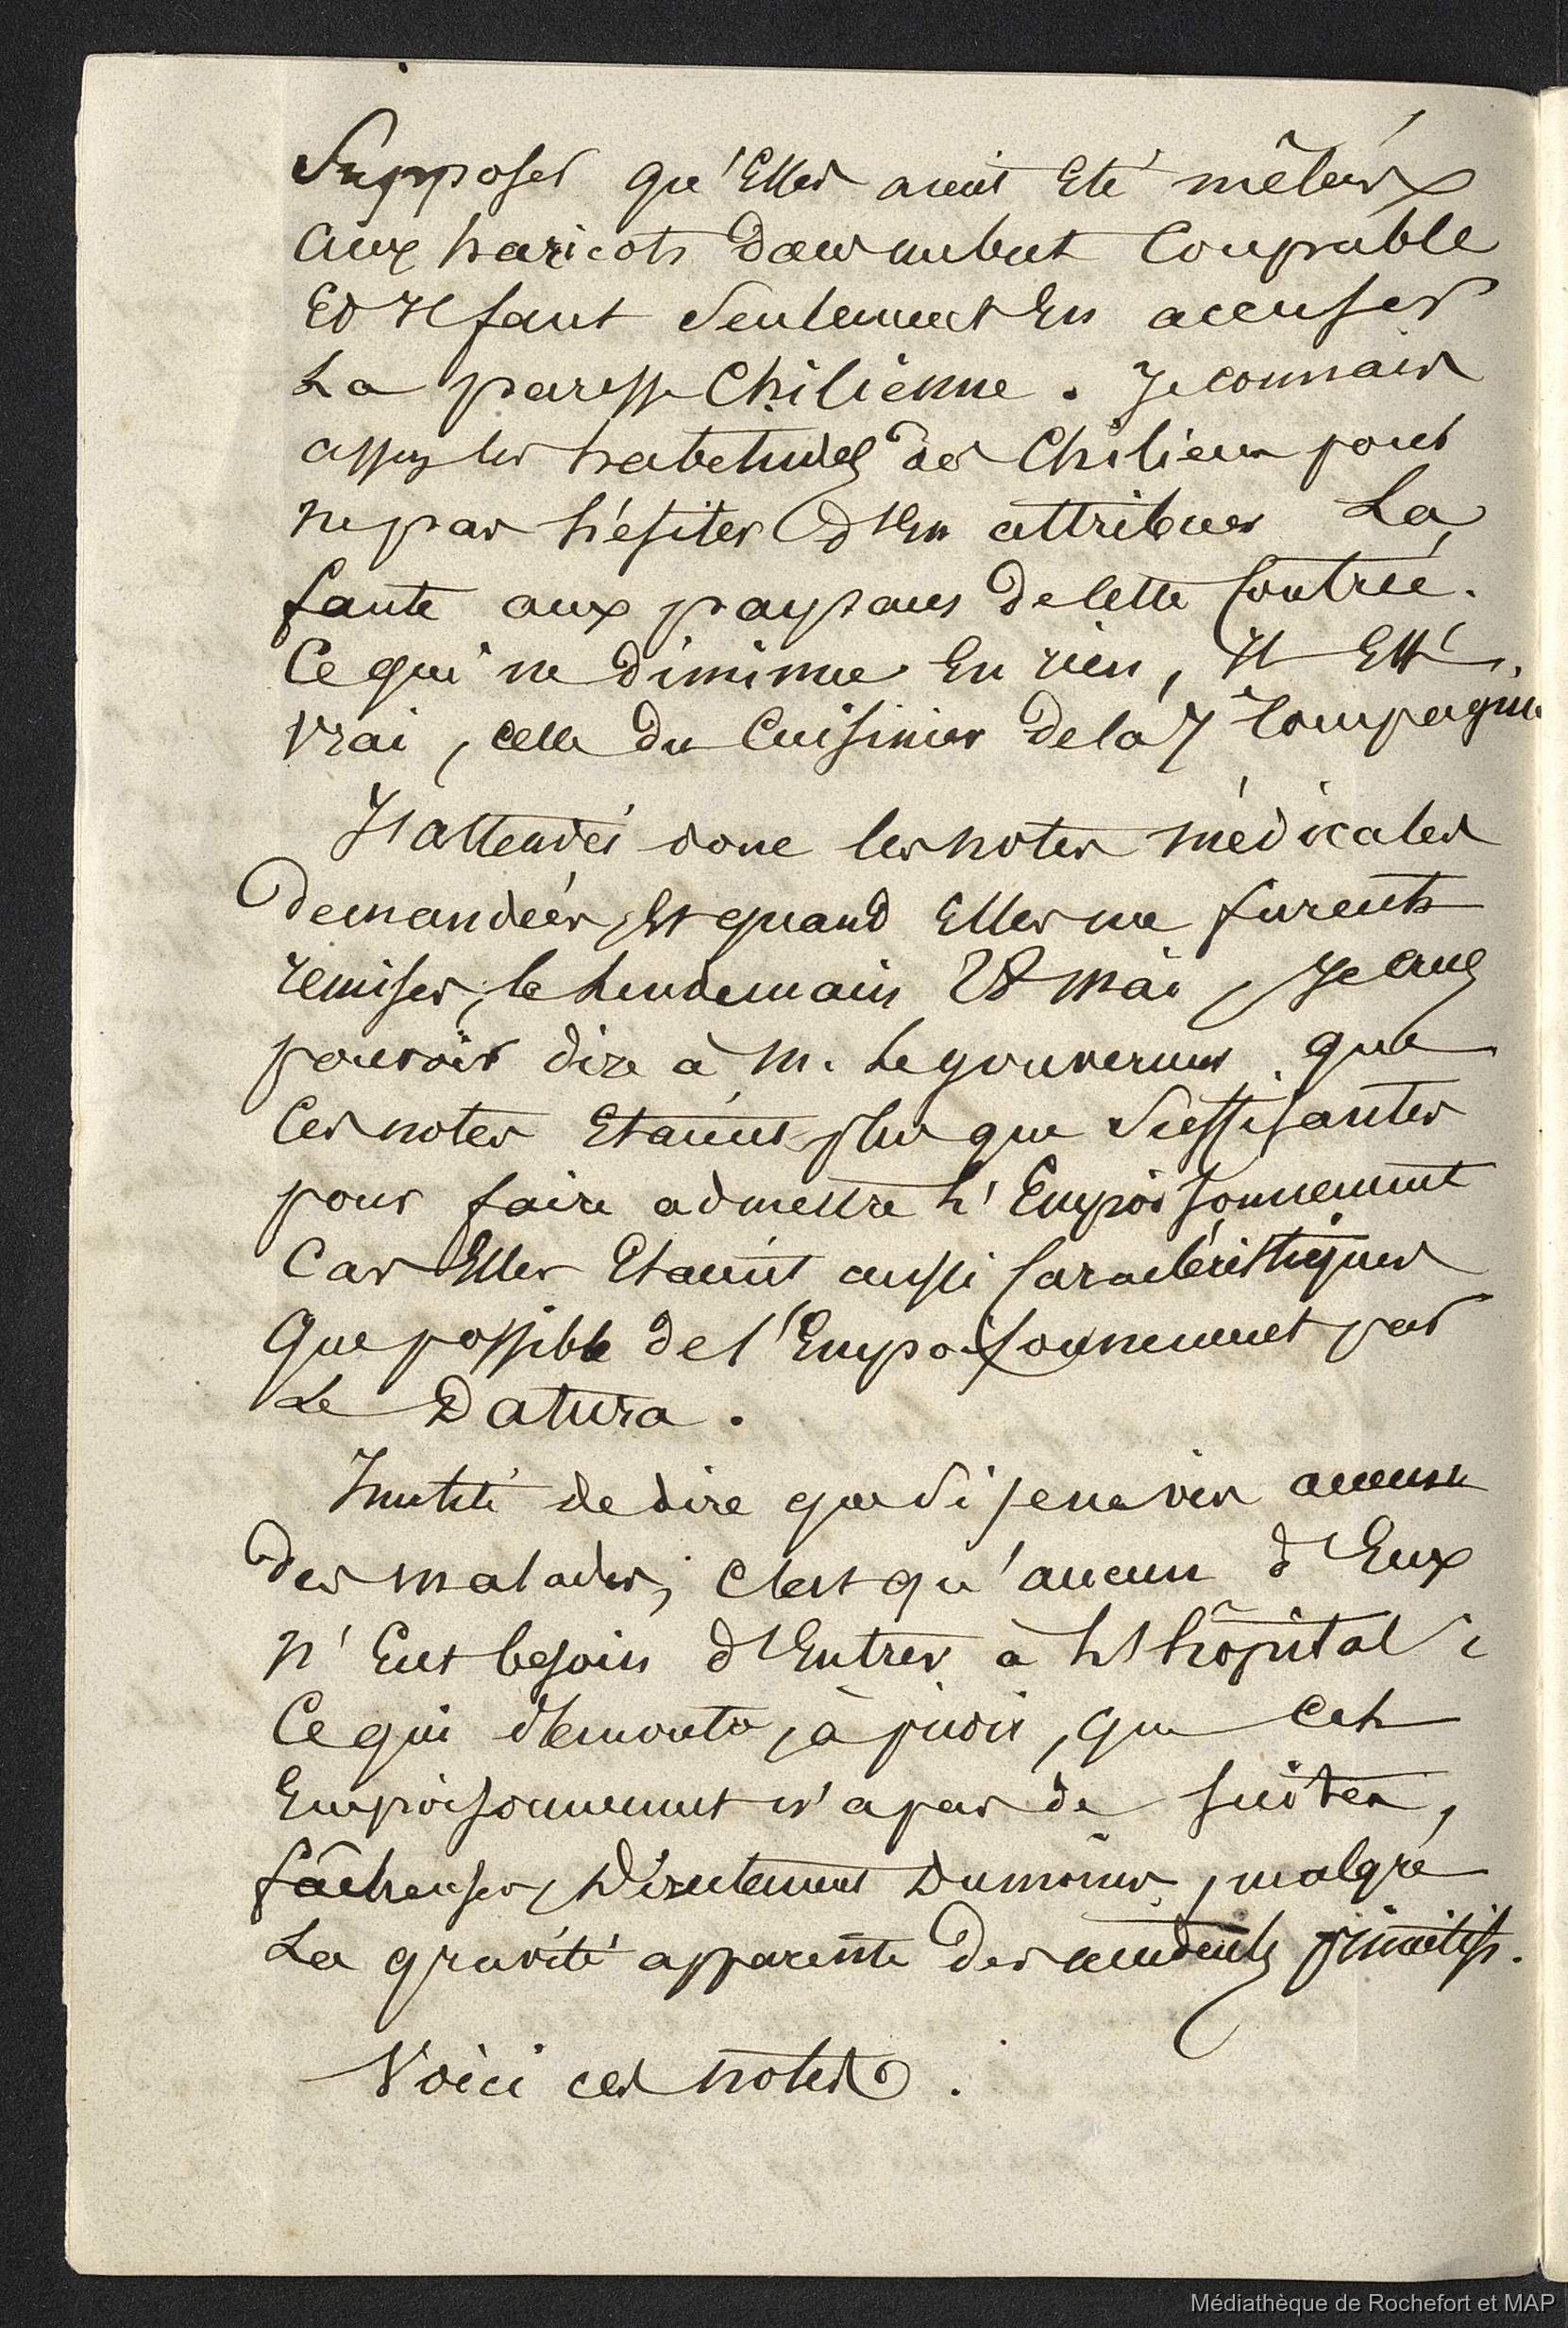 Supposer qu'Elles aient Eté mêlées
aux haricots dans un but Coupable
Et Il faut Seulement En accuser
La paresse Chilienne. Je connais
assez les habetudes des Chiliens pour
ne pas hésiter d'En attribuer La
faute aux paysans de cette Contrée.
Ce qui ne diminue En rien, Il Est
vrai, celle du Cuisinier de la 7e Compagnie
J'attendis donc les notes médicales
demandées, Et quand Elles me furent
remises, le Lendemain 28 Mai, Je crus
pouvoir dire à M. Le gouverneur que
Ces notes Etaient plus que Suffisantes
pour faire admettre L'Empoisonnement
Car Elles Etaient aussi Caractéristiques
Que possible de l'Empoisonnement par
Le Datura.
Inutile de dire que Si je ne vis aucun
des malades, C'est qu'aucun d'Eux
n'Eut besoin d'Entrer à L'hôpital;
Ce qui démontre, à priori, que cet
Empoisonnement n'a pas de suites,
fâcheuses, Directement Du moins, malgré
La gravité apparente des accidents primitifs.
Voici ces notes.
Médiathèque de Rochefort et MAP